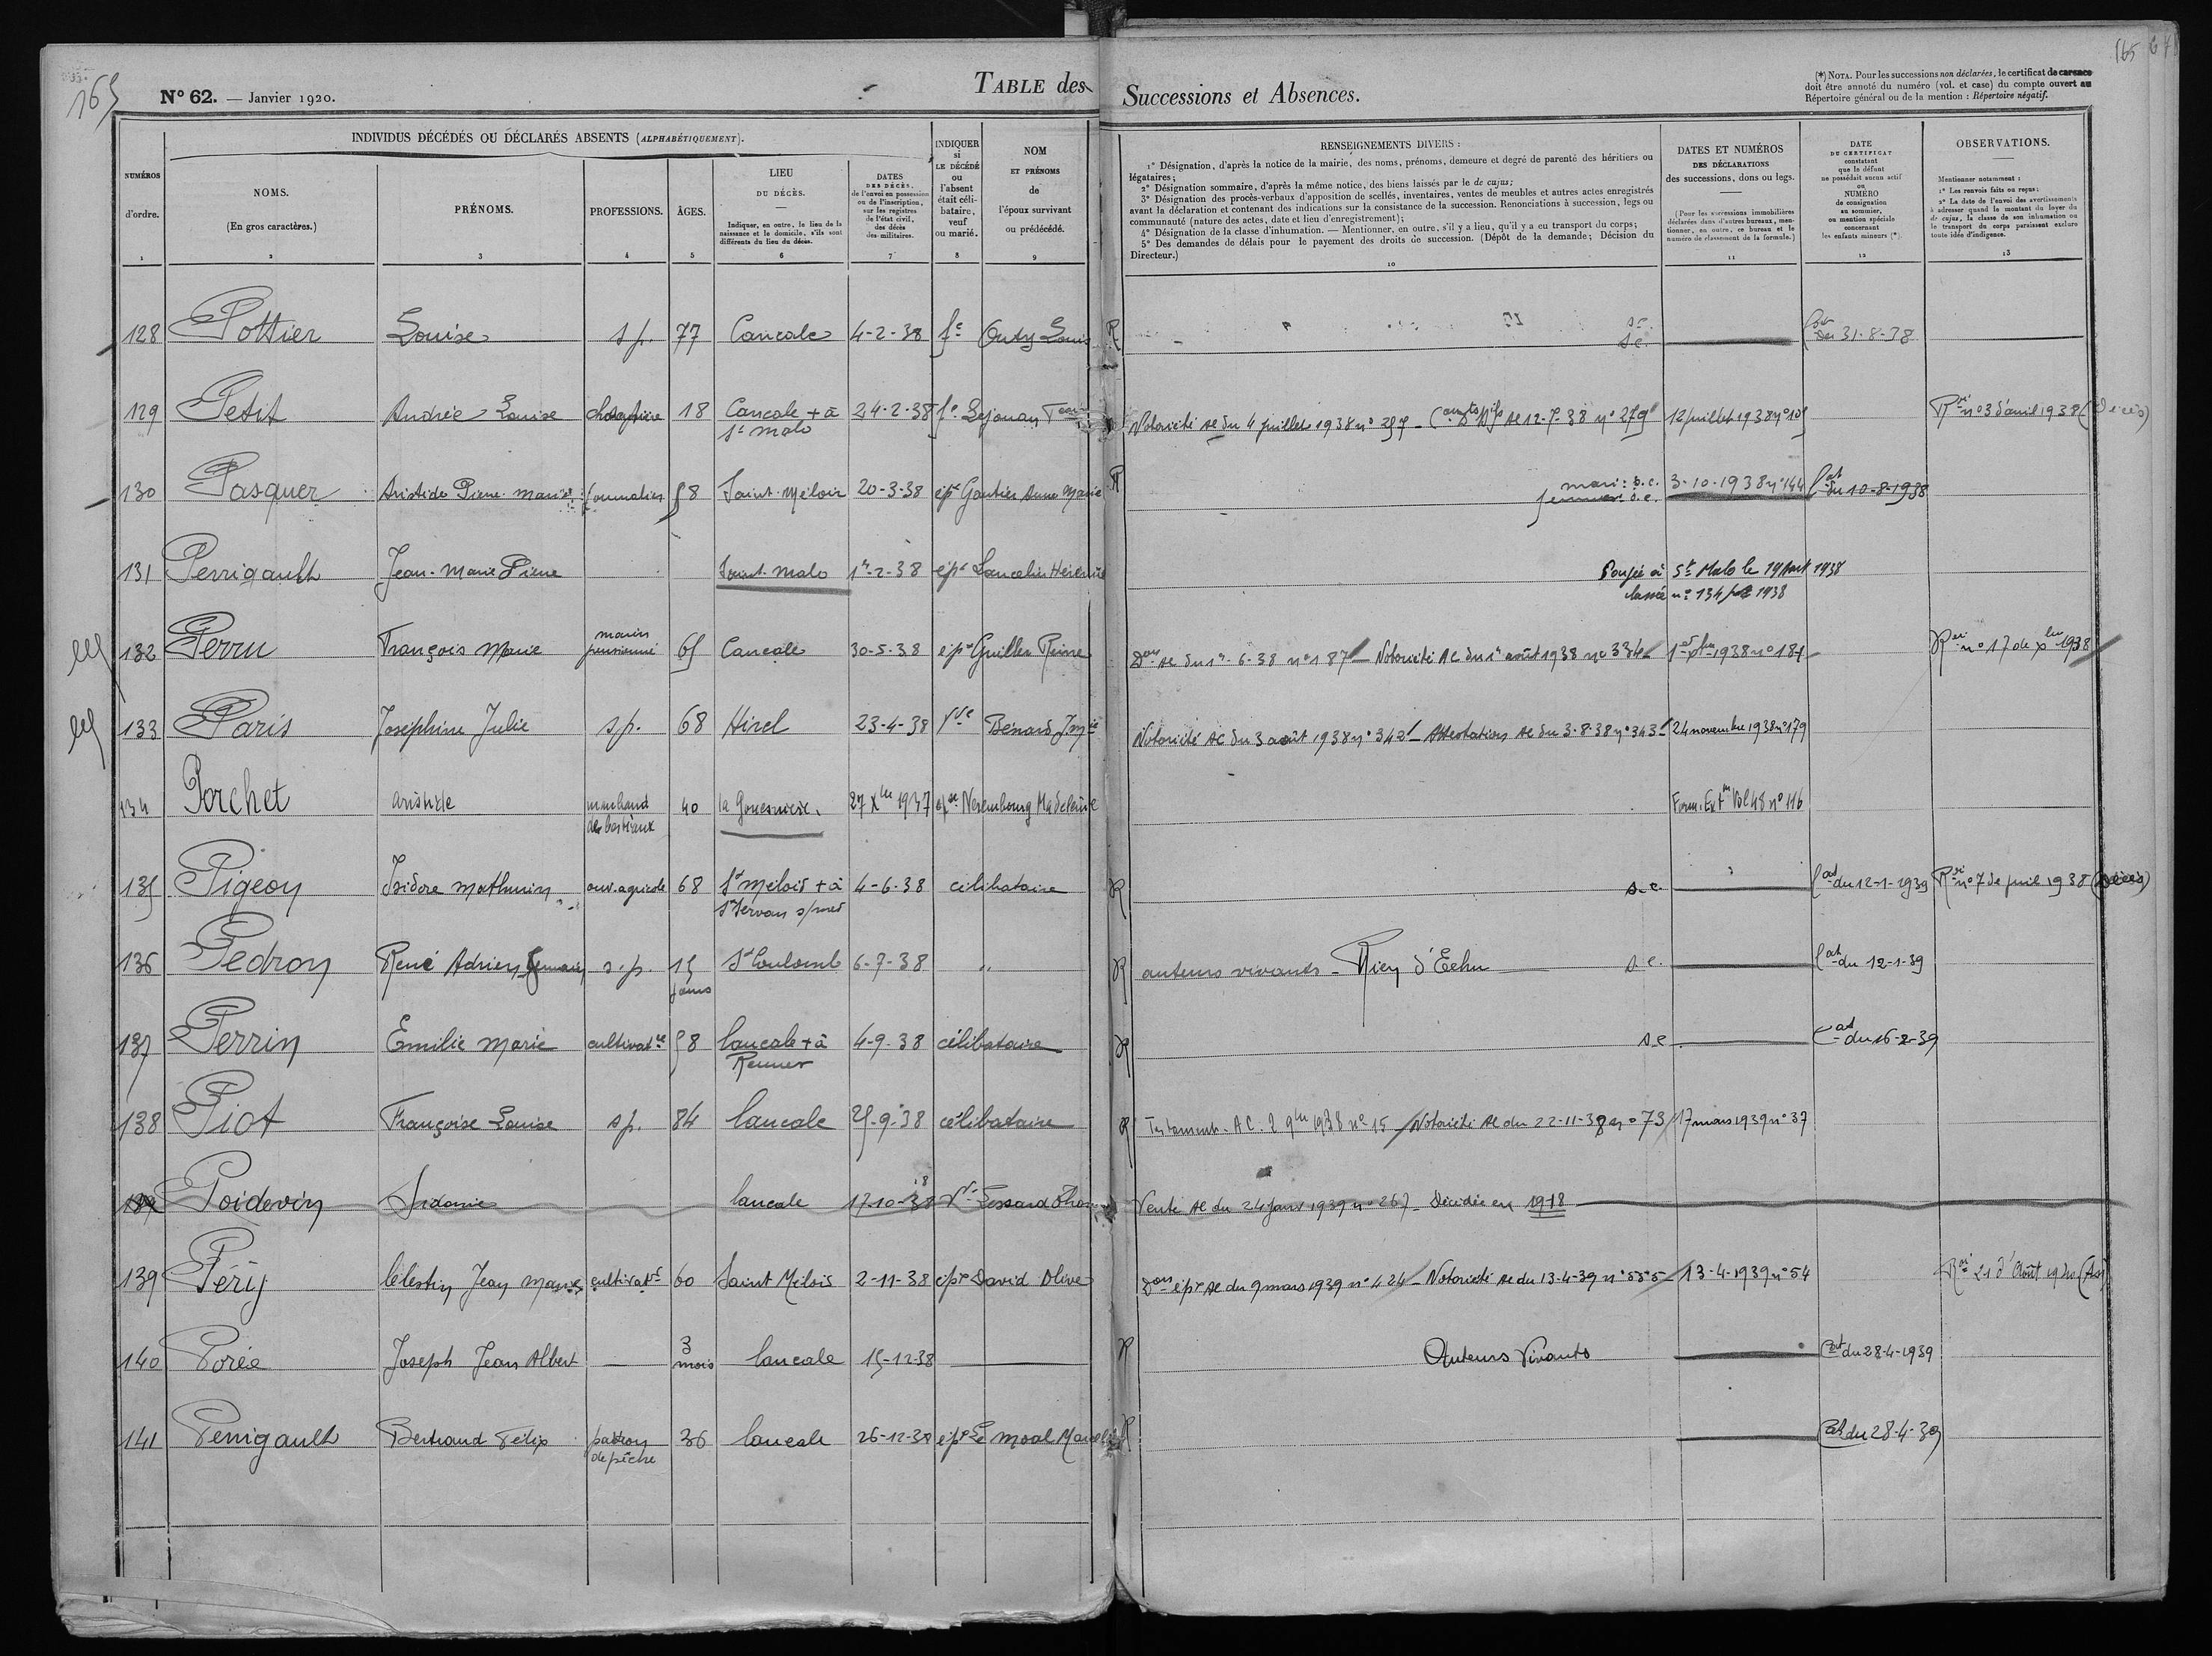 165
165
N° 62. — Janvier 1920.
TABLE des Successions et Absences.
(*) NOTA. Pour les successions non déclarées, le certificat de carence
doit être annoté du numéro (vol. et case) du compte ouvert au
Répertoire général ou de la mention : Répertoire négatif.
INDIVIDUS DÉCÉDÉS OU DÉCLARÉS ABSENTS (ALPHABÉTIQUEMENT).
NUMÉROS
d'ordre.
1
NOMS.
(En gros caractères.)
2
PRÉNOMS.
3
PROFESSIONS.
4
ÂGES.
5
LIEU
DU DÉCÈS.
Indiquer, en outre, le lieu de la
naissance et le domicile, s'ils sont
différents du lieu du décès.
6
DATES
DES DÉCÈS,
de l'envoi en possession
ou de l'inscription,
sur les registres
de l'état civil,
des décès
des militaires.
7
INDIQUER
si
LE DÉCÉDÉ
ou
l'absent
était céli-
bataire,
veuf
ou marié.
8
NOM
ET PRÉNOMS
de
l'époux survivant
ou prédécédé.
9
RENSEIGNEMENTS DIVERS :
1° Désignation, d'après la notice de la mairie, des noms, prénoms, demeure et degré de parenté des héritiers ou
légataires;
2° Désignation sommaire, d'après la même notice, des biens laissés par le de cujus;
3° Désignation des procès-verbaux d'apposition de scellés, inventaires, ventes de meubles et autres actes enregistrés
avant la déclaration et contenant des indications sur la consistance de la succession. Renonciations à succession, legs ou
communauté (nature des actes, date et lieu d'enregistrement);
4° Désignation de la classe d'inhumation. — Mentionner, en outre, s'il y a lieu, qu'il y a eu transport du corps;
5° Des demandes de délais pour le payement des droits de succession. (Dépôt de la demande; Décision du
Directeur.)
10
DATES ET NUMÉROS
DES DÉCLARATIONS
des successions, dons ou legs.
(Pour les successions immobilières
déclarées dans d'autres bureaux, men-
tionner, en outre, ce bureau et le
numéro de classement de la formule.)
11
DATE
DU CERTIFICAT
constatant
que le défunt
ne possédait aucun actif
ou
NUMÉRO
de consignation
au sommier,
ou mention spéciale
concernant
les enfants mineurs (*).
12
OBSERVATIONS.
Mentionner notamment :
1° Les renvois faits ou reçus;
2° La date de l'envoi des avertissements
à adresser quand le montant du loyer du
de cujus, la classe de son inhumation ou
le transport du corps paraissent exclure
toute idée d'indigence.
13
128 Pottier Louise s.p. 77 Cancale 4-2-38 fe Outy Louis R s.c. du 31-8-38
129 Petit Andrée Louise 18 Cancale + à 24-2-38 fe Lejouan Notoriété ac du 4 juillet 1938 n° 257 ac 12-7-38 n° 279 12 juillet 1938 n° 105 n° 3 d'avril 1938 (Décès)
St malo
130 Pasquer Aristide Pierre Marie 58 Saint-Méloir 20-3-38 épx Gautier Anne Marie R mari : s.c. 3-10-1938 n° 144 Cat du 10-8-1938
femme s.c.
131 Perrigault Jean-Marie Pierre Saint-Malo 1er-2-38 épx Lancelin à St Malo le 19 Aout 1938
classée n° 134 1938
132 Perru François Marie marin pensionné 65 Cancale 30-5-38 épx Guillen Reine Don ac du 1er-6-38 n° 187 — Notoriété AC du 1er août 1938 n° 334 1er Xbre 1938 n° 181 n° 17 de Xbre 1938
133 Paris Joséphine Julie s.p. 68 Hirel 23-4-38 Vve Bénard Notoriété AC du 3 août 1938 n° 342 — Attestation ac du 3-8-38 n° 343 24 novembre 1938 n° 179
134 Porchet Aristide marchand de bestiaux 40 la Gouesnière. 27 Xbre 1937 Madeleine Form. Ext Vol 48 n° 116
135 Pigeon Isidore Mathurin ouv. agricole 68 St Méloir + à 4-6-38 célibataire R s.c. Cat du 12-1-1939 n° 7 de juil 1938 (Décès)
St Servan s/mer
136 Pedron René Adrien Germain s.p. 15 jours St Coulomb 6-7-38 " R auteurs vivants - Rien d'Echu s.c. Cat du 12-1-39
137 Perrin Emilie Marie cultivatce 58 Cancale + à 4-9-38 célibataire R s.c. Cat du 16-2-39
Rennes
138 Piot Françoise Louise s.p. 84 Cancale 25-9-38 célibataire R Testament. AC. 2 9bre 1938 n° 15 / Notoriété ac du 22-11-38 n° 73 17 mars 1939 n° 37
139 Poidevin Sidonie Cancale 17-10-38 18 Ve Lessard Vente ac du 24 janv 1939 n° 267 - Décédée en 1918
139 Péry Célestin Jean Marie cultivatr 60 Saint Méloir 2-11-38 épx David Olive Don épx ac du 9 mars 1939 n° 424 — Notoriété ac du 13-4-39 n° 555 13-4-1939 n° 54 21 d'Août 1940
140 Porée Joseph Jean Albert 3 mois Cancale 15-12-38 R Auteurs Vivants Cat du 28-4-1939
141 Perrigault Bertrand Félix patron de pêche 36 Cancale 26-12-38 épx Le Moal R Cat du 28-4-39